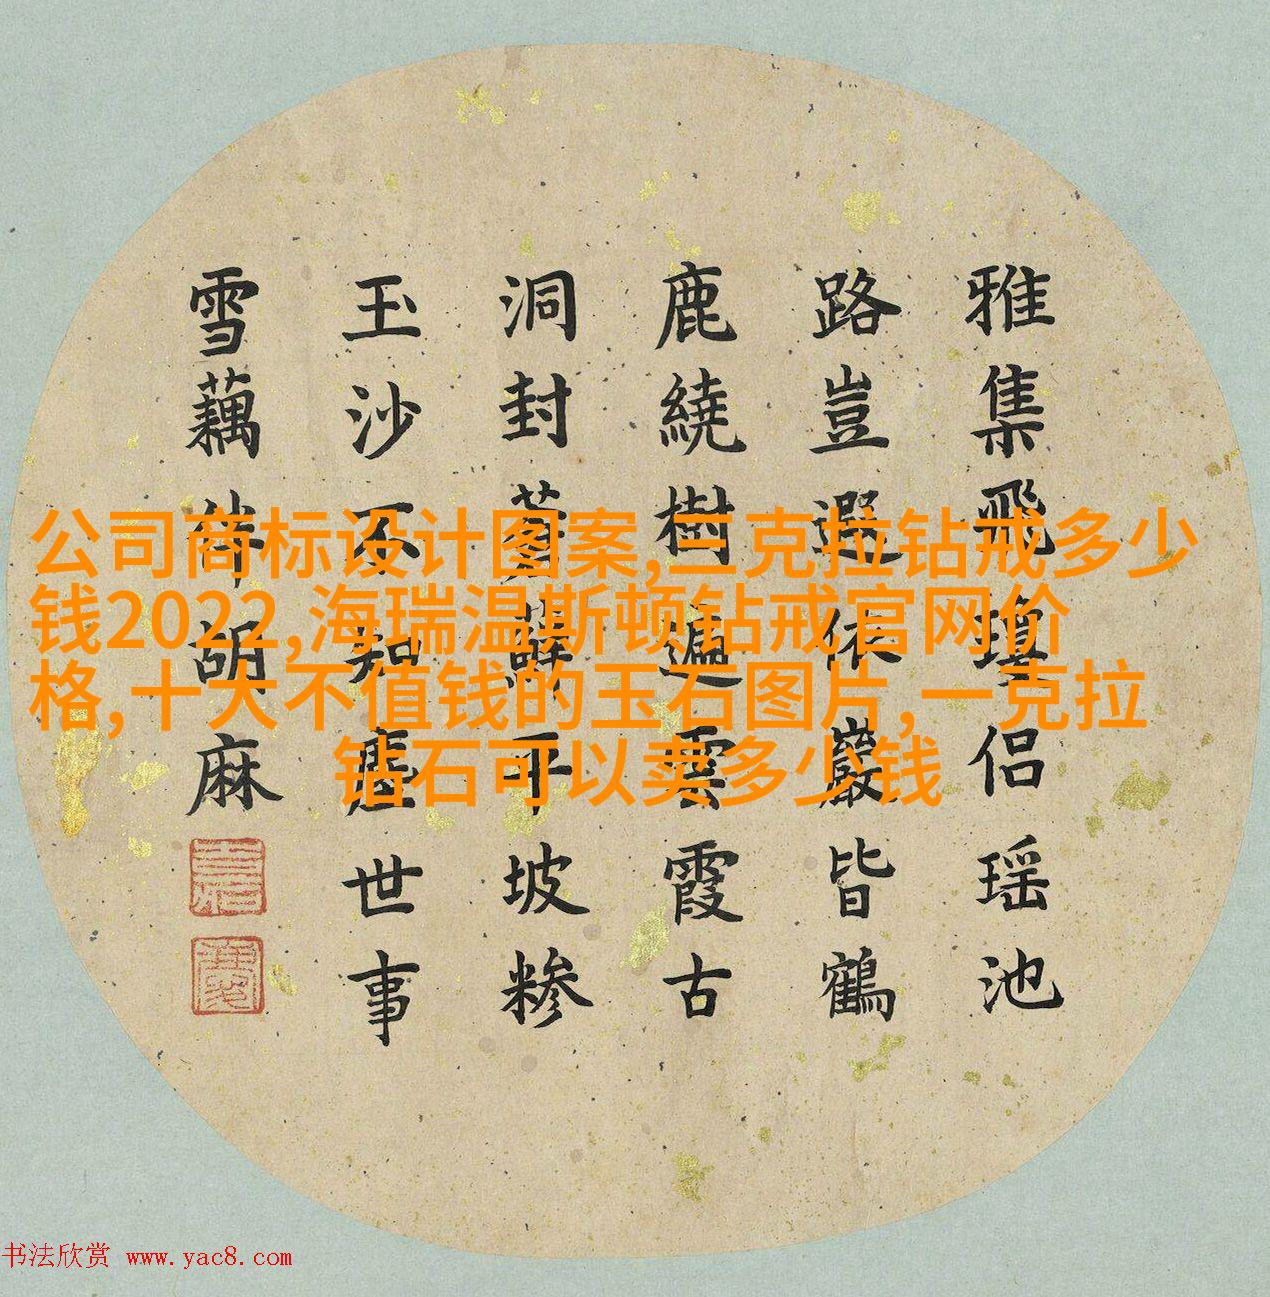 雅集飛瓊侶瑶池
路豈遐依巖皆鶴
鹿繞樹遍雲霞古
洞封蒼蘚平坡糝
玉沙不知塵世事
雪藕伴胡麻
公司商标设计图案,三克拉钻戒多少
钱2022,海瑞温斯顿钻戒官网价
格,十大不值钱的玉石图片,一克拉
钻石可以卖多少钱
书法欣赏 www.yac8.com